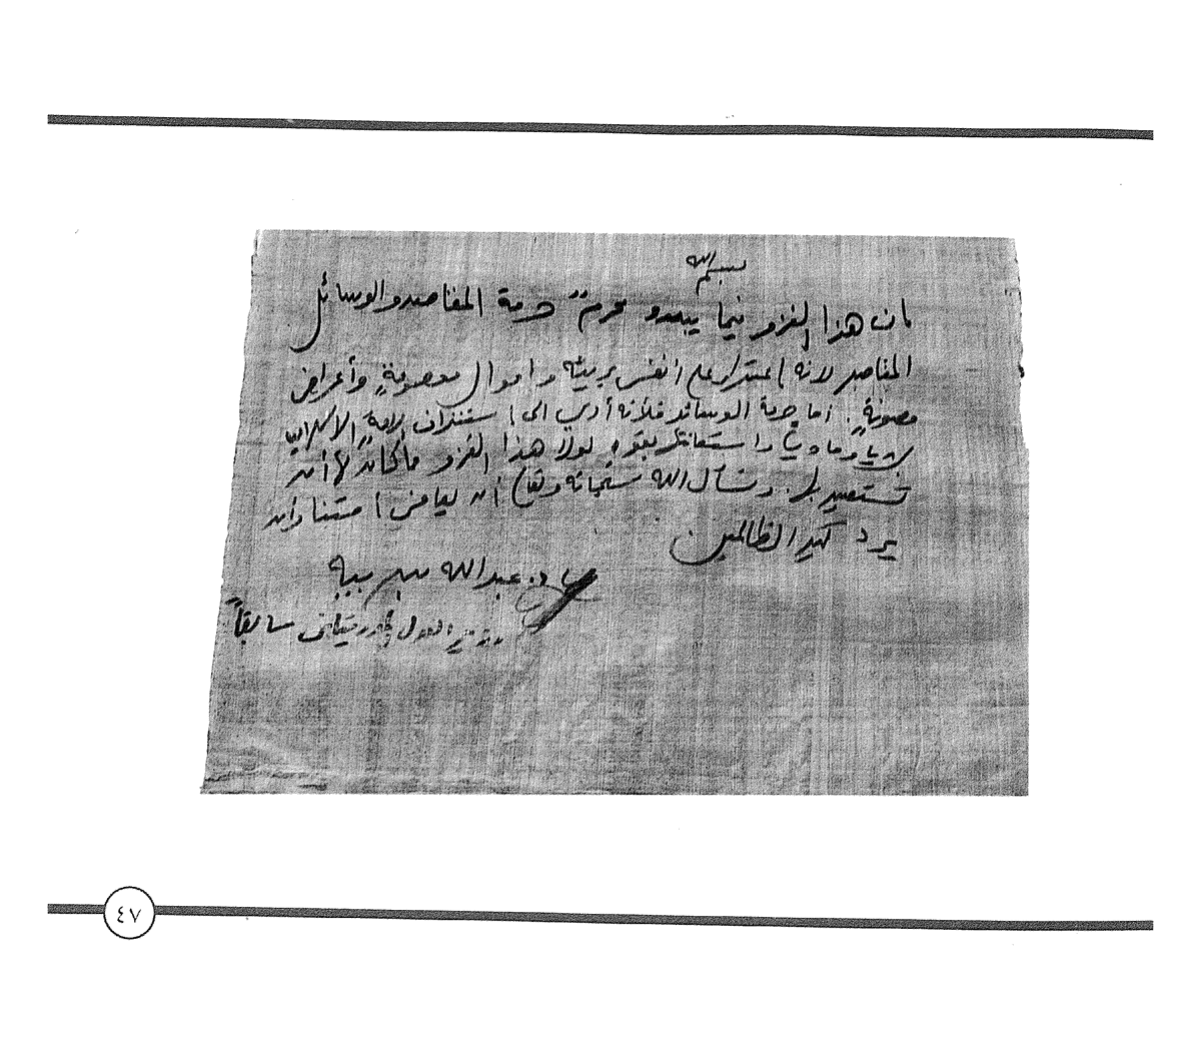 بسم الله
إن هذا الغزو فيما يبدو محرم حرمة المقاصد والوسائل
المقاصد لأنه اعتداء على أنفس بريئة وأموال معصومةٍ وأعراض
مصونةٍ. أما حرمة الوسائل فلأنه أدى الى استنزاف الأمة الإسلامية
بشرياً ومادياً واستعانتها بقوى لولا هذا الغزو ما كانت لها أن
تستعين بها. ونسأل الله سبحانه وتعالى أن يعافي أمتنا وأن
يرد كيد الظالمين
د. عبدالله بن بيه
وزير العدل الموريتاني سابقاً
٤٧